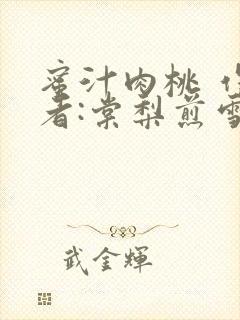 蜜汁肉桃 作
者:棠梨煎雪
武金輝